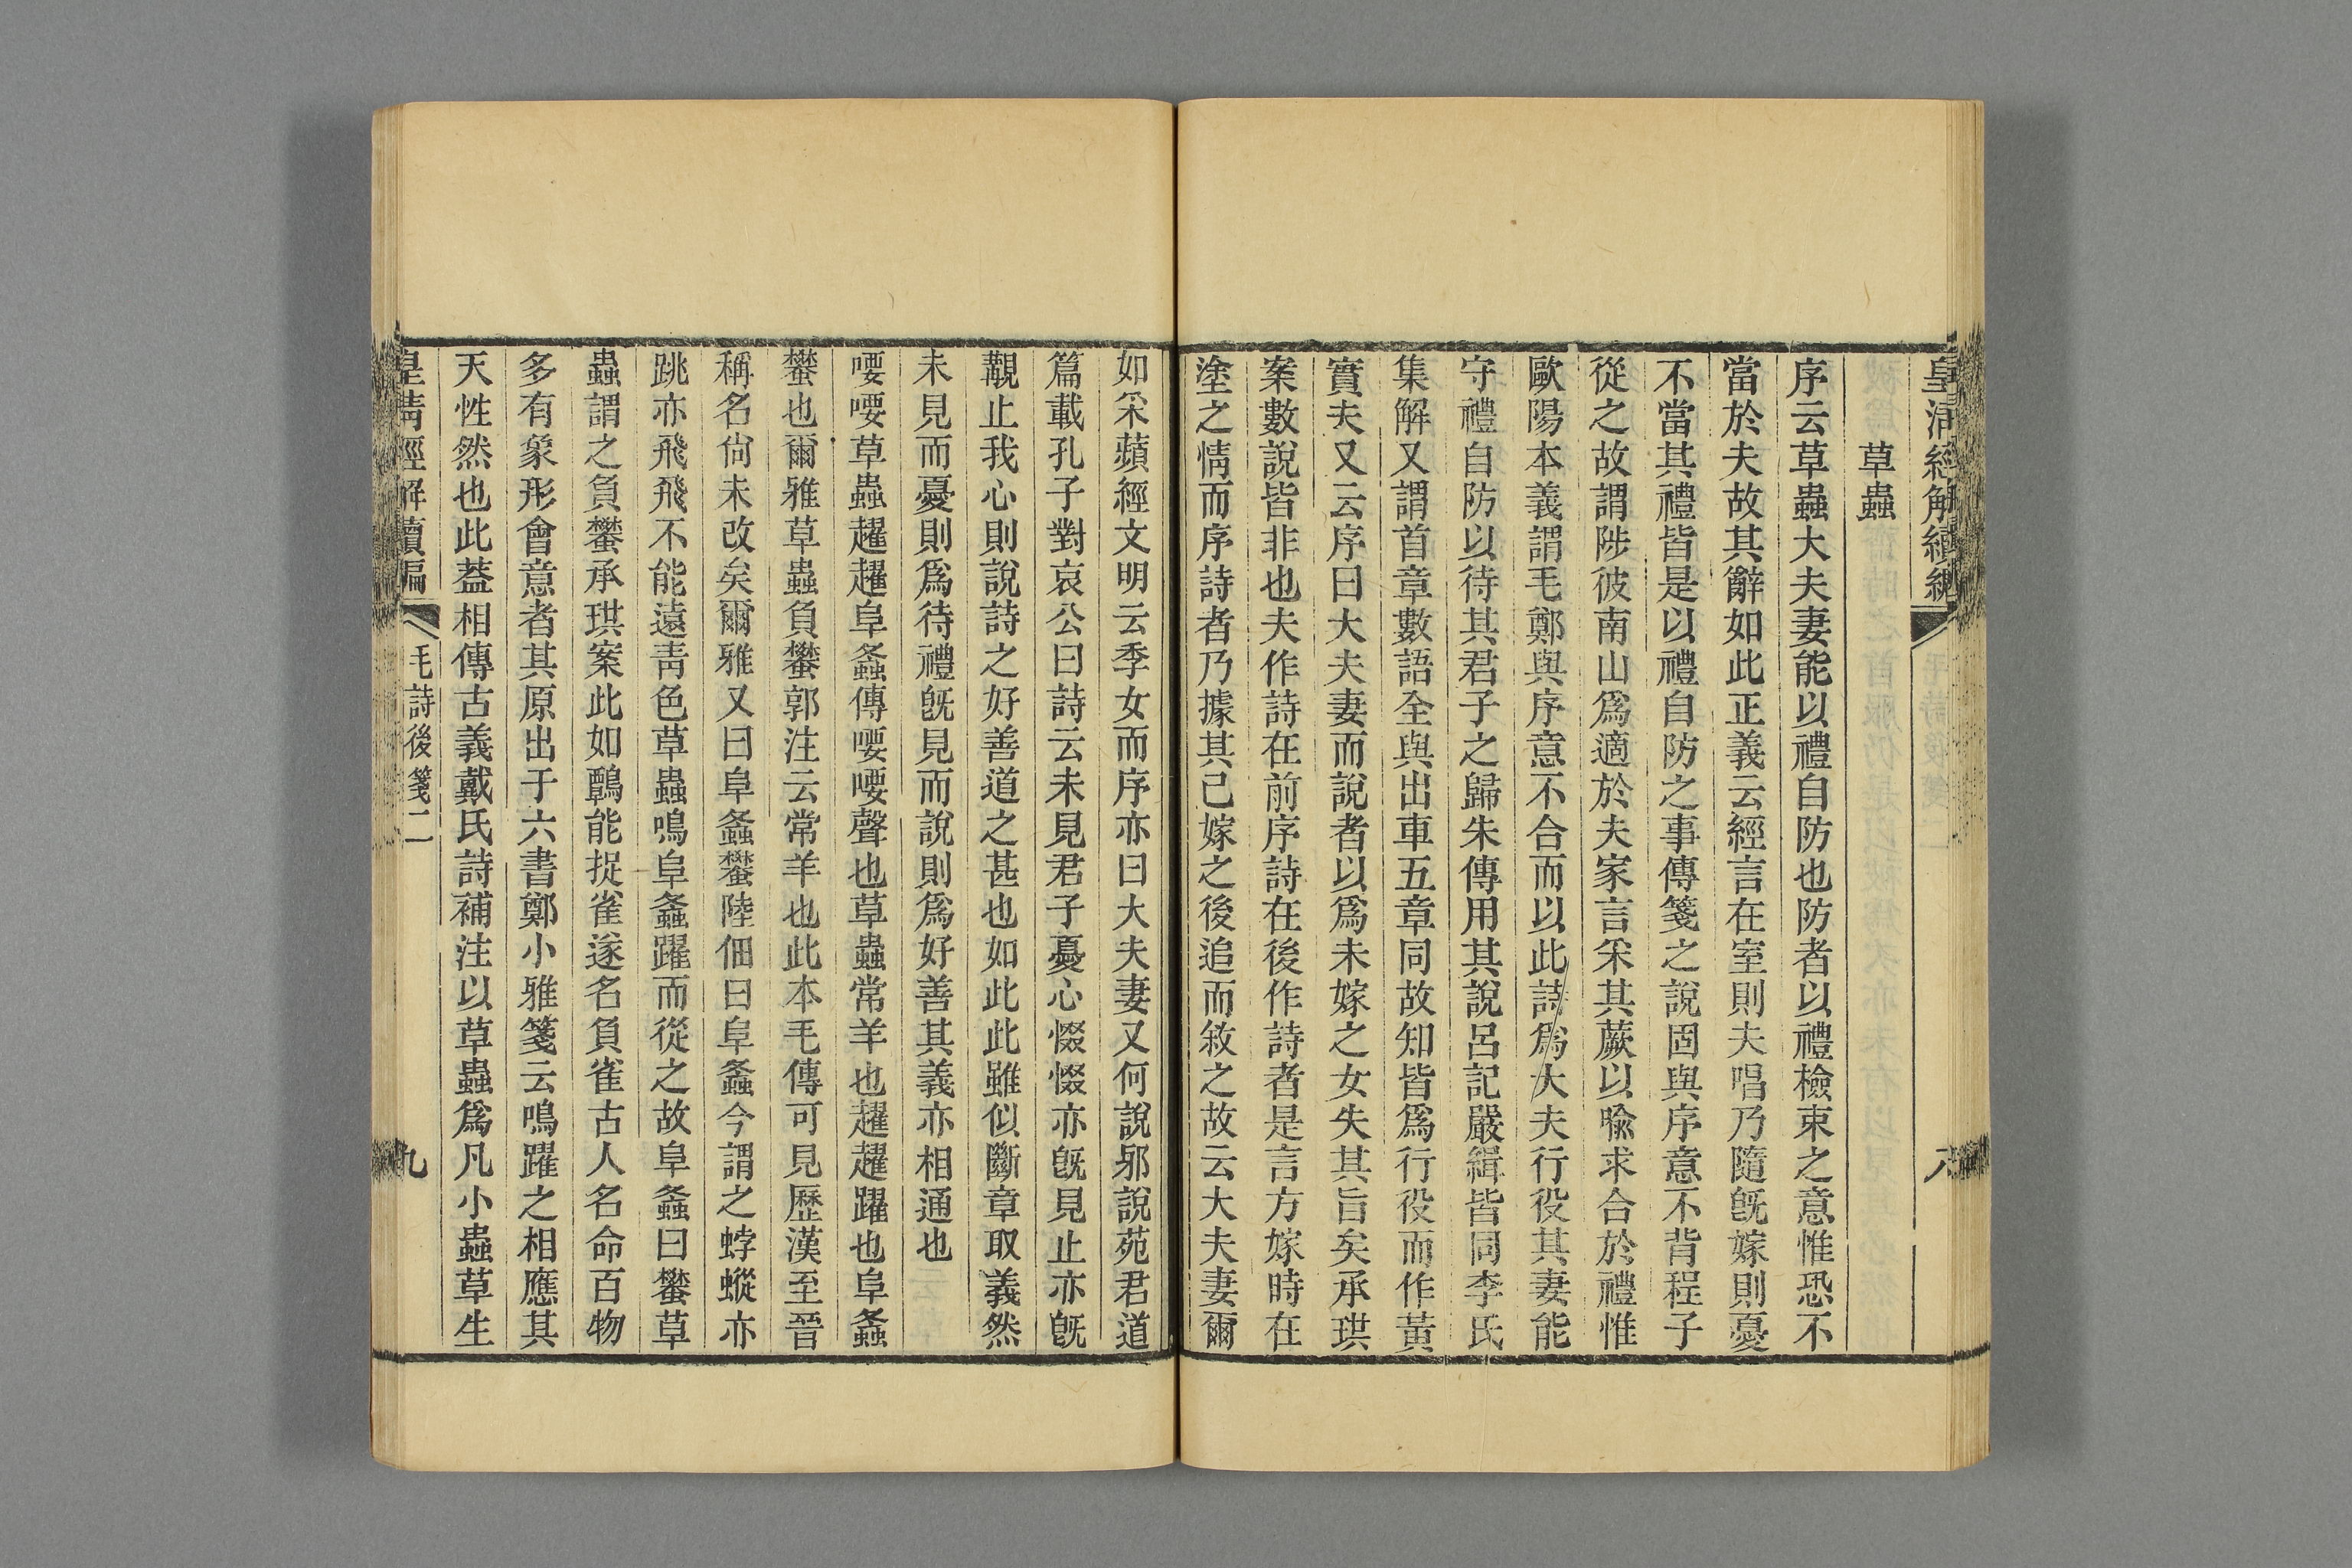 皇清經解續編
八
草蟲
序云草蟲大夫妻能以禮自防也防者以禮檢束之意惟恐不
當於夫故其辭如此正義云經言在室則夫唱乃隨旣嫁則憂
不當其禮皆是以禮自防之事傳箋之說固與序意不背程子
從之故謂陟彼南山爲適於夫家言采其蕨以喩求合於禮惟
歐陽本義謂毛鄭與序意不合而以此詩爲大夫行役其妻能
守禮自防以待其君子之歸朱傳用其說呂記嚴緝皆同李氏
集解又謂首章數語全與出車五章同故知皆爲行役而作黃
實夫又云序曰大夫妻而說者以爲未嫁之女失其旨矣承珙
案數說皆非也夫作詩在前序詩在後作詩者是言方嫁時在
塗之情而序詩者乃據其已嫁之後追而敘之故云大夫妻爾
如采蘋經文明云季女而序亦曰大夫妻又何說邪說苑君道
篇載孔子對哀公曰詩云未見君子憂心惙惙亦旣見止亦旣
覯止我心則說詩之好善道之甚也如此此雖似斷章取義然
未見而憂則爲待禮旣見而說則爲好善其義亦相通也
喓喓草蟲趯趯阜螽傳喓喓聲也草蟲常羊也趯趯躍也阜螽
蠜也爾雅草蟲負蠜郭注云常羊也此本毛傳可見歷漢至晉
稱名尙未改矣爾雅又曰阜螽蠜陸佃曰阜螽今謂之蜉蝬亦
跳亦飛飛不能遠靑色草蟲鳴阜螽躍而從之故阜螽曰蠜草
蟲謂之負蠜承珙案此如鸇能捉雀遂名負雀古人名命百物
多有象形會意者其原出于六書鄭小雅箋云鳴躍之相應其
天性然也此葢相傳古義戴氏詩補注以草蟲爲凡小蟲草生
皇淸經解續編
毛詩後箋二
九